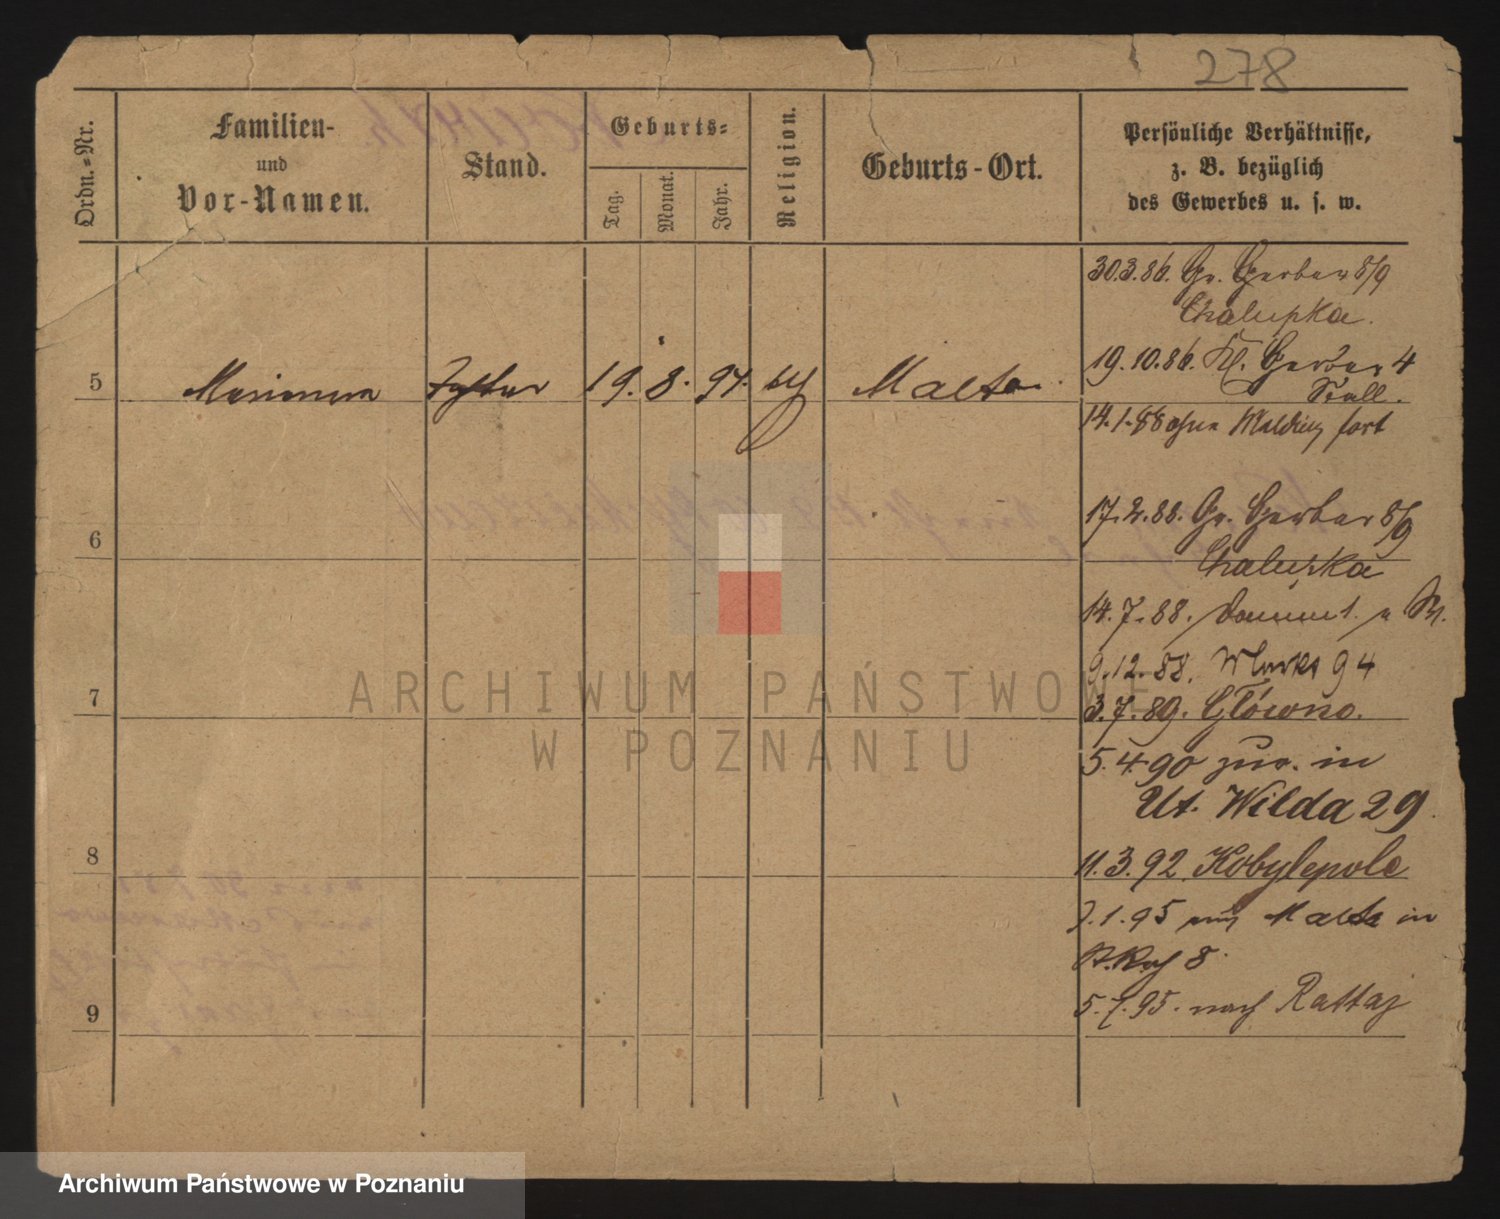 278
Ordn.-Nr.
Familien-
und
Vor-Namen.
Stand.
Geburts-
Tag.
Monat.
Jahr.
Religion.
Geburts-Ort.
Persönliche Verhältnisse,
z. B. bezüglich
des Gewerbes u. s. w.
30.3.86. Gr. Gerber 8/9
Chalupka.
19.10.86. Kl. Gerber 4
5 Marianna Tochter 19. 8. 94. Malta
Stall.
14.1.88 ohne Meldung fort
17.2.88. Gr. Gerber 8/9
6
Chalupka
14.7.88.
9.12.88. 94
7
3.7.89. Główno.
5.4.90 zur. in
Ut. Wilda 29.
8
11.3.92 Kobylepole
7.1.95 Malta in
8.
5.7.95. nach Rattaj
9
ARCHIWUM PAŃSTWOWE
W POZNANIU
Archiwum Państwowe w Poznaniu